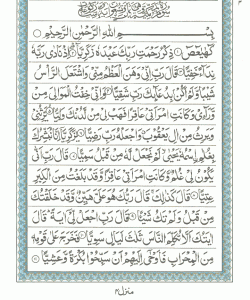 بِسْمِ اللهِ الرَّحْمٰنِ الرَّحِيْمِ
كٓهٰيٰعٓصٓ ذِكْرُ رَحْمَتِ رَبِّكَ عَبْدَهٗ زَكَرِيَّا اِذْ نَادٰى رَبَّهٗ
نِدَآءً خَفِيًّا قَالَ رَبِّ اِنِّيْ وَهَنَ الْعَظْمُ مِنِّيْ وَاشْتَعَلَ الرَّاْسُ
شَيْبًا وَّلَمْ اَكُنْۢ بِدُعَآئِكَ رَبِّ شَقِيًّا وَاِنِّيْ خِفْتُ الْمَوَالِيَ مِنْ
وَّرَآءِيْ وَكَانَتِ امْرَاَتِيْ عَاقِرًا فَهَبْ لِيْ مِنْ لَّدُنْكَ وَلِيًّا يَّرِثُنِيْ
وَيَرِثُ مِنْ اٰلِ يَعْقُوْبَ وَاجْعَلْهُ رَبِّ رَضِيًّا يٰزَكَرِيَّآ اِنَّا نُبَشِّرُكَ
بِغُلٰمِ ۨاسْمُهٗ يَحْيٰى لَمْ نَجْعَلْ لَّهٗ مِنْ قَبْلُ سَمِيًّا قَالَ رَبِّ اَنّٰى
يَكُوْنُ لِيْ غُلٰمٌ وَّكَانَتِ امْرَاَتِيْ عَاقِرًا وَّقَدْ بَلَغْتُ مِنَ الْكِبَرِ
عِتِيًّا قَالَ كَذٰلِكَ قَالَ رَبُّكَ هُوَ عَلَيَّ هَيِّنٌ وَّقَدْ خَلَقْتُكَ
مِنْ قَبْلُ وَلَمْ تَكُ شَيْـًٔا قَالَ رَبِّ اجْعَلْ لِّيْٓ اٰيَةً قَالَ
اٰيَتُكَ اَلَّا تُكَلِّمَ النَّاسَ ثَلٰثَ لَيَالٍ سَوِيًّا فَخَرَجَ عَلٰى قَوْمِهٖ
مِنَ الْمِحْرَابِ فَاَوْحٰٓى اِلَيْهِمْ اَنْ سَبِّحُوْا بُكْرَةً وَّعَشِيًّا
منزل ٤